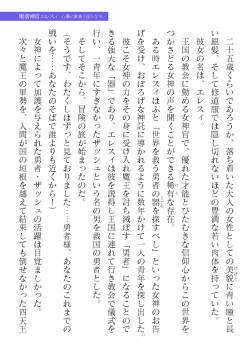 聖教神官エレスィ　心悪に束縛されたなら…
二十五歳くらいであろうか、落ち着いた大人の女性としての美貌に青い瞳と長
い銀髪、そして修道服では隠し切れないほどの豊満な若い肉体を持っていた。
彼女の名は、エレスィ。
王国の教会に勤める女神官で、優れた才能とひたむきな信仰心からこの世界を
つかさどる女神の声を聞くことができる稀有な存在。
ある時エレスィはふと「世界を救う勇者の器を探すべし」といった女神のお告
げを受け、おぼろげな神託に導かれるように数年かけて一人の青年を探し出した。
彼こそ女神の力をその身に受け入れ魔王を討ち滅ぼす「勇者」になることので
きる強大な「器」であり、エレスィは彼を説得し王国に連れて行き教会で儀式を
行い、一青年にすぎなかったザッシュという名の男を救国の勇者とした。
そしてそこから、冒険の旅が始まったのだ。
（そうです、わたくしはずっと見ておりました……勇者様、あなたのこれまでの
戦いを……あなたのそばで誰よりも近くから！）
女神によって加護を与えられた勇者・ザッシュの活躍は目覚ましかった。
次々と魔王の軍勢を、人間が国の垣根を越えて結束しても倒せなかった四天王